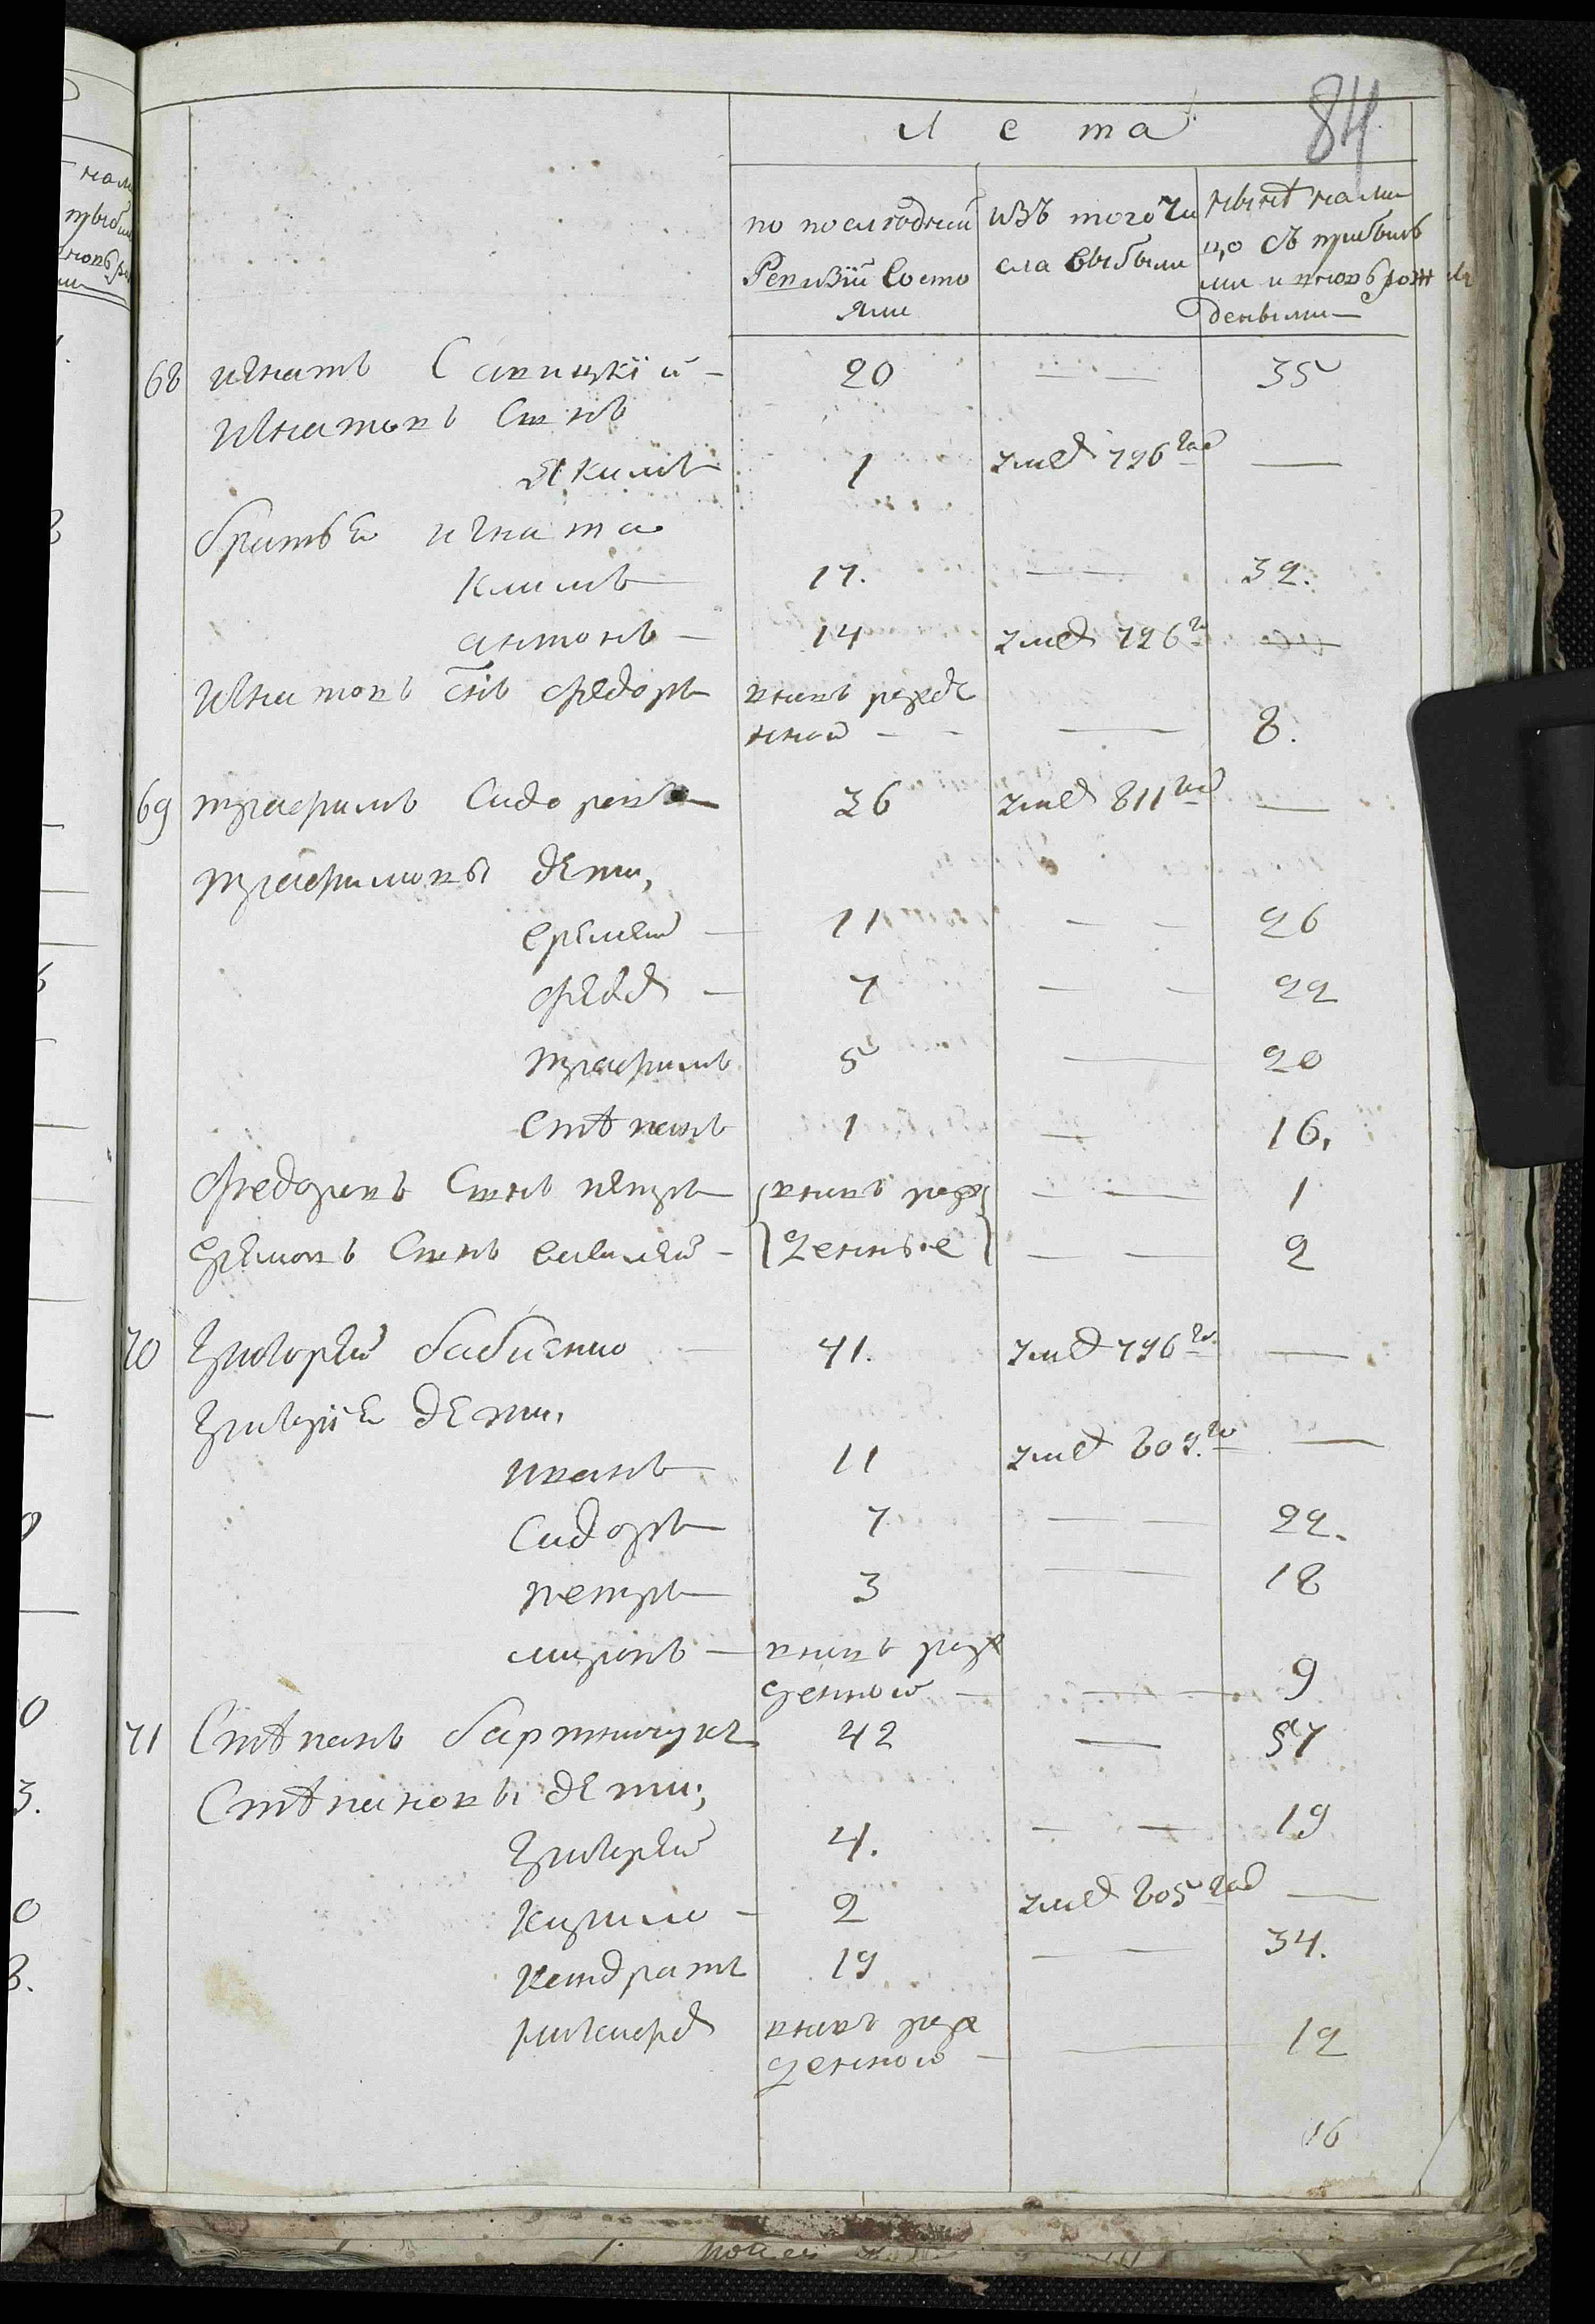 84
Лета
по последней Ревизїи Состояли
изъ того Числа выбыли
ныне налицо съ прибылыми и вновь рожденными
68 игнатъ Савицкїй — 20 — — 35
игнатовъ Сынъ
Якимъ 1 умеръ 796 год —
братья игната
Климъ 17. — 32.
антонъ — 14 умеръ 796 го —
игнатовъ Снъ федоръ вновь рожденной — — — 8.
69 трафимъ Сидоровъ 36 умеръ 811 год —
трафимовы дети,
еремей — 11 — — 26
федоръ — 7 — — 22
трафимъ 5 — 20
Степанъ 1 — 16.
федоровъ Сынъ петръ вновь рож — — 1
еремовъ Сынъ — денные — — 2
70 григорей бабиенко — 41. умеръ 796 го. —
григорiя дети,
иванъ 11 умеръ 809. го —
Сидоръ 7 — — 22.
петръ 3 — 18
миронъ — вновь рожденной — — — 9
71 Степанъ бартничукъ 42 — 57
Степановы дети;
григорей 4. — — 19
кирило — 2 умеръ 805 год —
кондратъ 19 — — 34.
никифоръ вновь рожденной — — 12
16